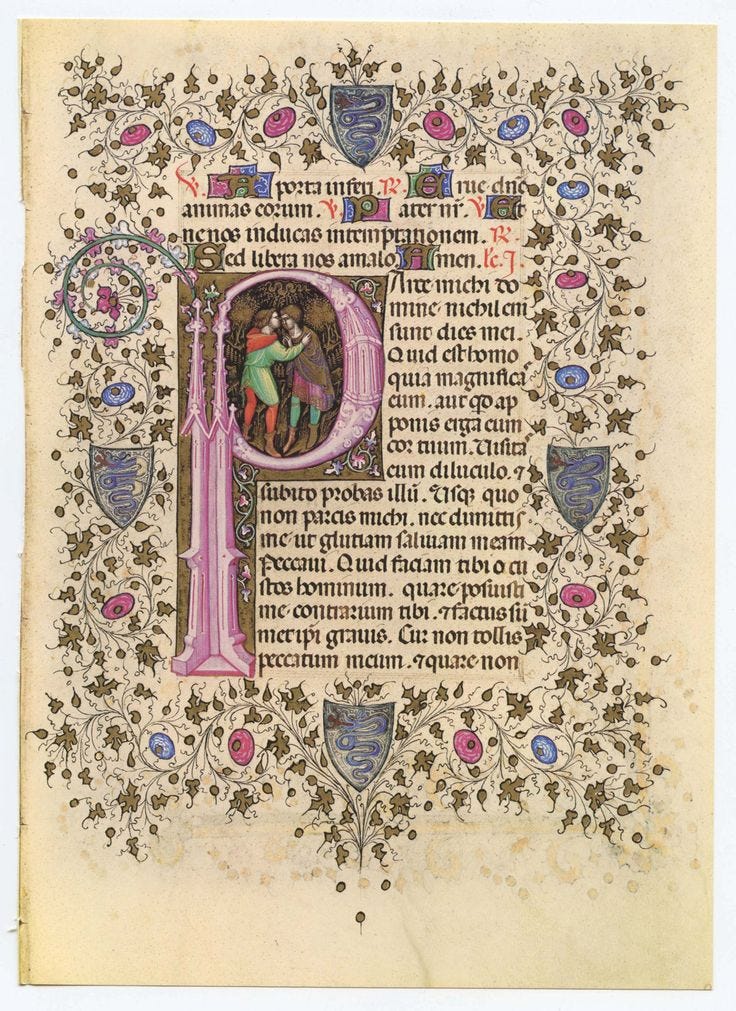 V. A porta inferi. R. Erue dñe
animas eorum. V. Pater nr̃. V. Et
ne nos inducas in temptationem. R.
Sed libera nos amalo. Amen. lc. J.
Parce michi do
mine nichil eni
sunt dies mei.
Quid est homo
quia magnifica
eum. aut qd ap
ponis erga eum
cor tuum. Uisita
eum diluculo. ⁊
subito probas illū. Usq̄ quo
non parcis michi. nec dimittis
me ut glutiam saliuam meam
Peccaui. Quid faciam tibi o cu
stos hominum. quare posuisti
me contrarium tibi. ⁊ factus sū
metip̄i grauis. Cur non tollis
peccatum meum. ⁊ quare non